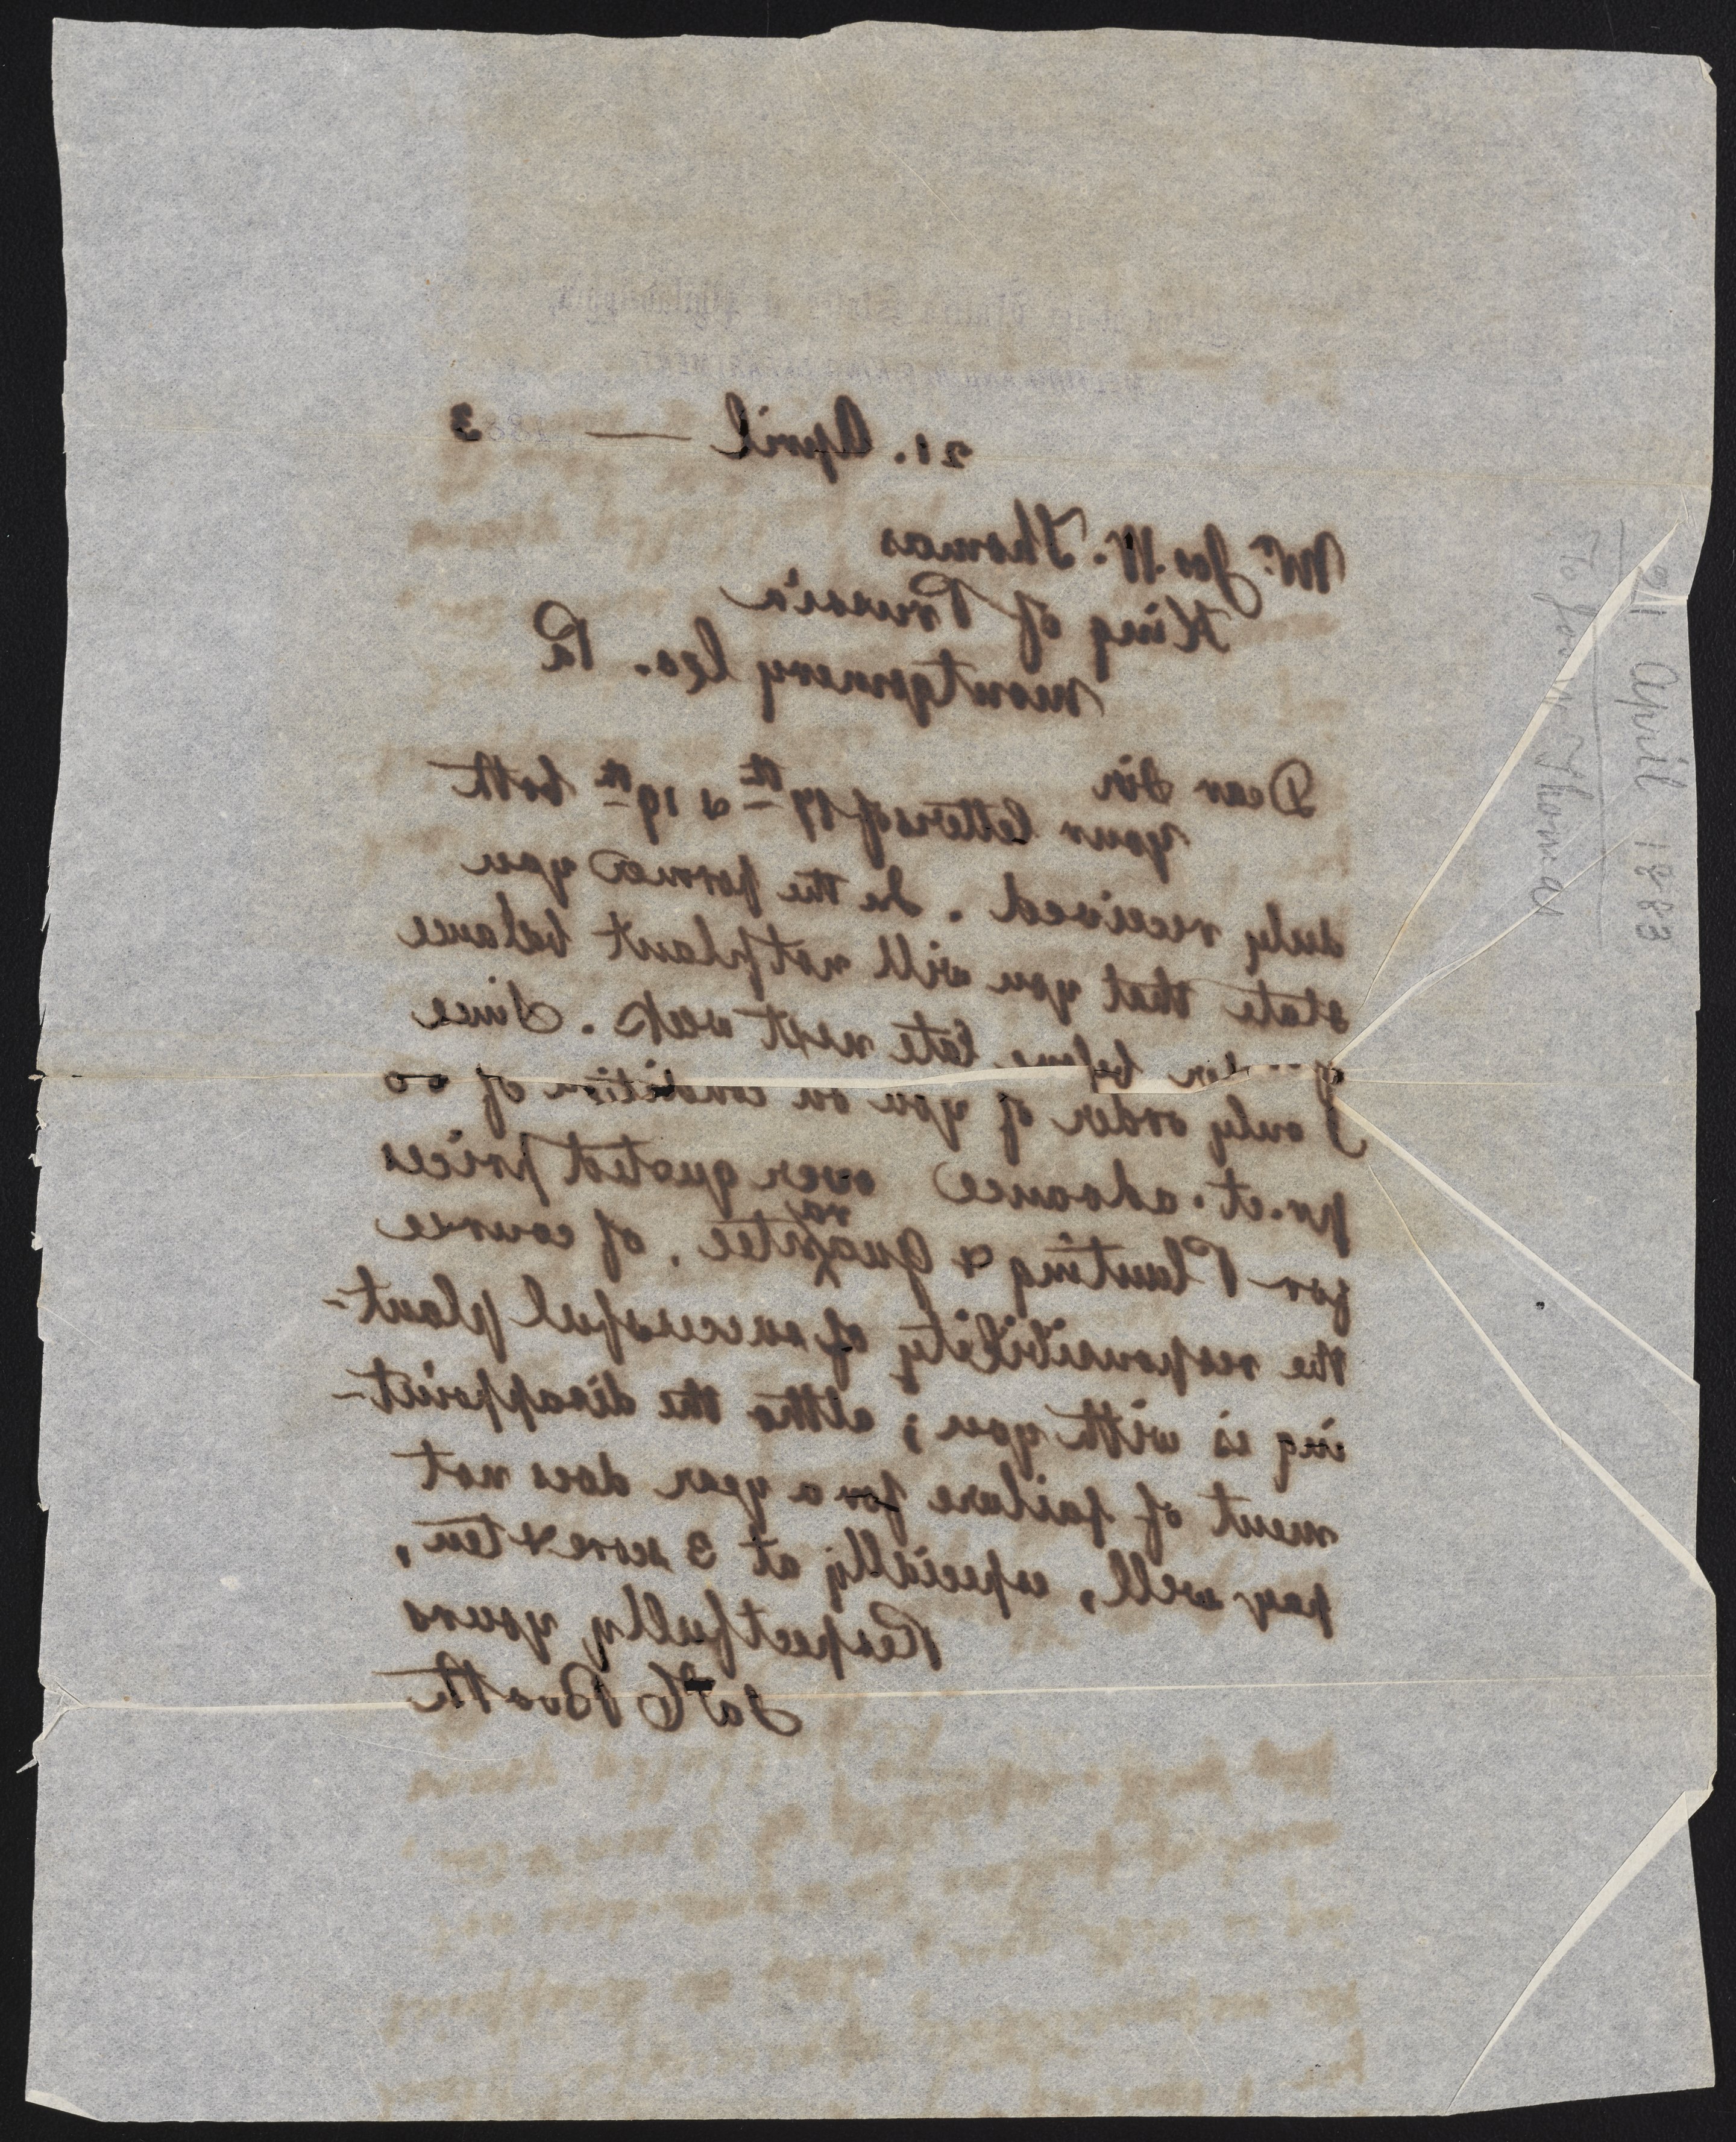 Mint of the United States at Philadelphia,
MELTING AND REFINING DEPARTMENT
21. April — 1883
Mr. Jos. W. Thomas
King of Prussia
Montgomery Co. Pa
Dear Sir
Your letters of 17th & 19th both
duly received. In the former you
state that you will not plant balance
before late next week. Since
I only order of you on condition of 20
pr. ct. advance over quoted prices
for Planting & Guarantee, of course
the responsibility of successful plant-
ing is with you; altho the disappoint-
ment of failure for a year does not
pay well, especially at 3 score & ten,
Respectfully yours
Jas C Booth
21 April 1883
To Jos. W. Thomas